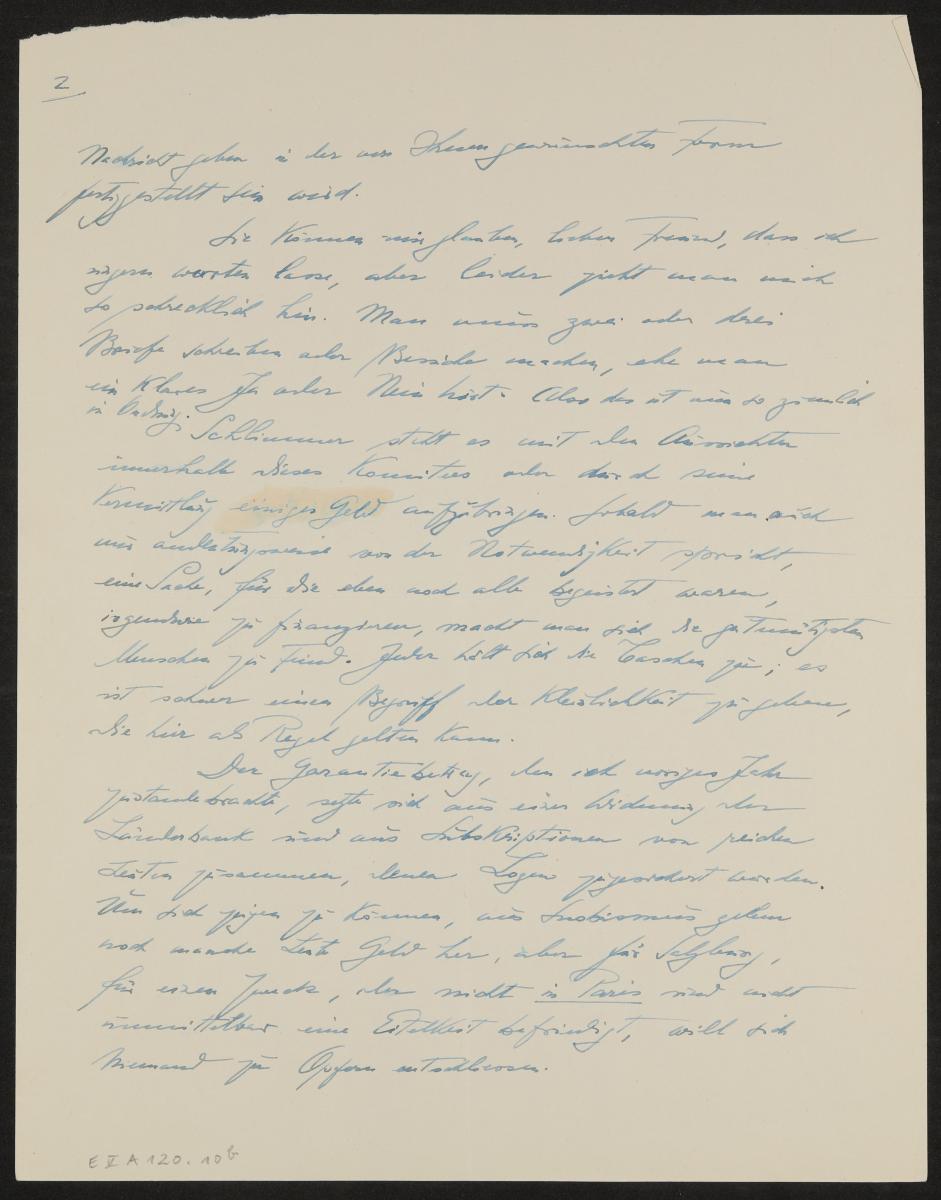 2
Nachricht geben in der von Ihnen gewünschten Form
festgestellt sein wird.
Sie können mir glauben, lieber Freund, dass ich
ungern warten lasse, aber leider zieht man mich
so schrecklich hin. Man muss zwei oder drei
Briefe schreiben oder Besuche machen, ehe man
ein klares Ja oder Nein hört. Also das ist nun so ziemlich
in Ordnung.
Schlimmer steht es mit den Aussichten
innerhalb dieses Komitees oder durch seine
Vermittlung einiges Geld aufzubringen. Sobald man auch
nur andeutungsweise von der Notwendigkeit spricht,
eine Sache, für die eben noch alle begeistert waren,
irgendwie zu finanzieren, macht man sich die gutmütigsten
Menschen zu Feind. Jeder hält sich die Taschen zu; es
ist schwer einen Begriff der Kleinlichkeit zu geben,
die hier als Regel gelten kann.
Der Garantiebetrag, den ich voriges Jahr
zustandebrachte, setzte sich aus einer Widmung der
Länderbank und aus Subskriptionen von reichen
Leuten zusammen, denen Logen zugesichert wurden.
Um sich zeigen zu können, aus Snobismus geben
noch manche Leute Geld her, aber für Salzburg,
für einen Zweck, der nicht in Paris und nicht
unmittelbar eine Eitelkeit befriedigt, will sich
niemand zu Opfern entschliessen.
E II A 120.10b